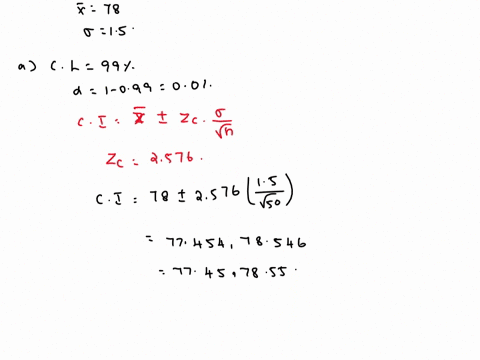 x̄ = 78
σ = 1.5
a) C.L = 99%.
α = 1-0.99 = 0.01.
C.I = x̄ ± Zc. σ/√n
Zc = 2.576.
C.I = 78 ± 2.576 (1.5/√50)
= 77.454, 78.546
= 77.45, 78.55.